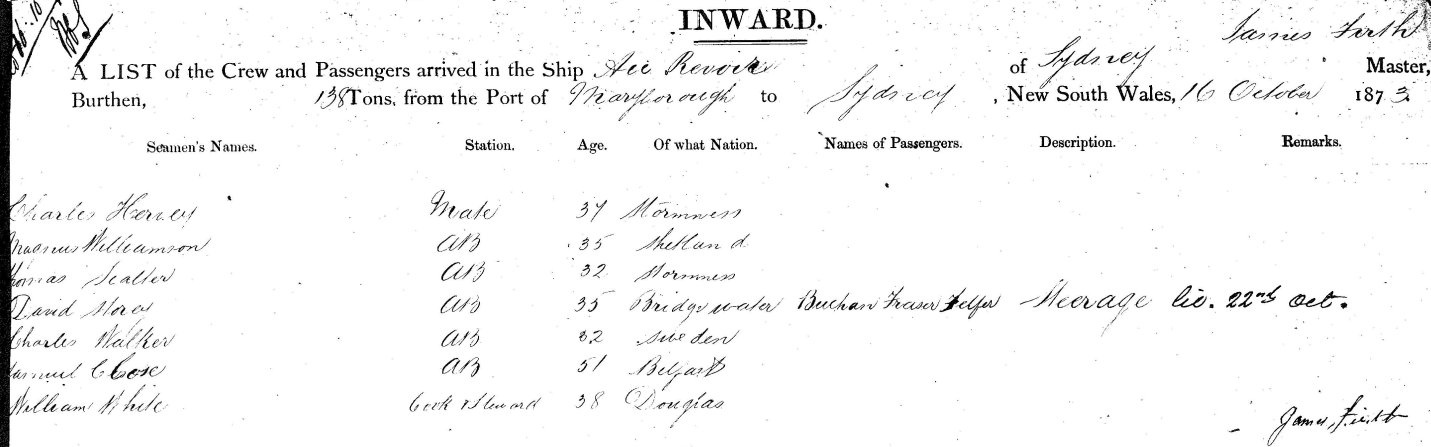 INWARD.
James Firth
A LIST of the Crew and Passengers arrived in the Ship Au Revoir of Sydney Master,
Burthen, 138 Tons, from the Port of Maryborough to Sydney, New South Wales, 16 October 1873
Seamen's Names. Station. Age. Of what Nation. Names of Passengers. Description. Remarks.
Charles Hervey Mate 37 Stormness
Magnus Williamson AB 35 Shetland
Thomas Scalter AB 32 Stormness
David Storey AB 35 Bridgewater Buchan Fraser Telfer Steerage liv. 22nd Oct.
Charles Walker AB 32 Sweden
Samuel Close AB 51 Belfast
William White Cook & Steward 38 Douglas
James Firth